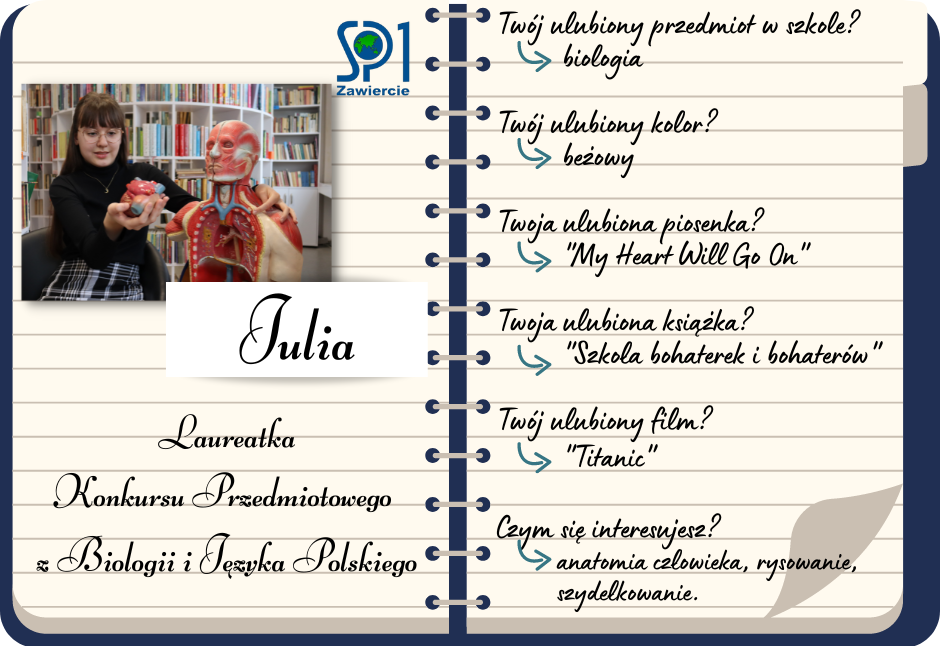 SP1
Zawiercie
Julia
Laureatka
Konkursu Przedmiotowego
z Biologii i Języka Polskiego
Twój ulubiony przedmiot w szkole?
biologia
Twój ulubiony kolor?
beżowy
Twoja ulubiona piosenka?
"My Heart Will Go On"
Twoja ulubiona książka?
"Szkoła bohaterek i bohaterów"
Twój ulubiony film?
"Titanic"
Czym się interesujesz?
anatomia człowieka, rysowanie,
szydełkowanie.